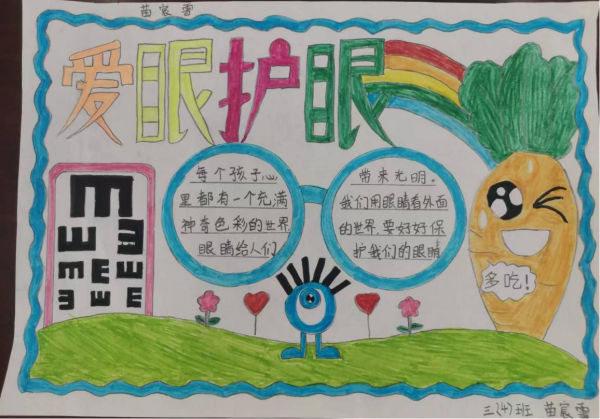 苗宸雪
爱眼护眼
每个孩子心
里都有一个充满
神奇色彩的世界
眼睛给人们
带来光明.
我们用眼睛看外面
的世界,要好好保
护我们的眼睛
多吃!
三(4)班 苗宸雪